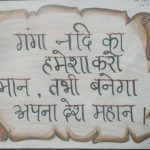 गंगा नदि का
हमेशा करो
मान, तभी बनेगा
अपना देश महान ।